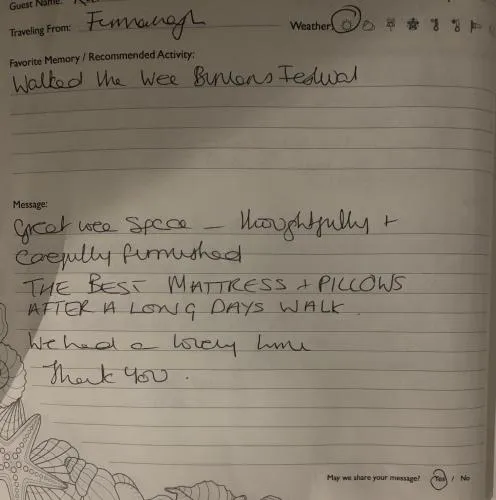 Guest Name:
Traveling From: Fermanagh Weather:
Favorite Memory / Recommended Activity:
Walked the Wee Binnians Festival
Message:
Great wee space – thoughtfully +
carefully furnished
THE BEST MATTRESS + PILLOWS
AFTER A LONG DAYS WALK.
We had a lovely time
Thank You.
May we share your message? Yes / No